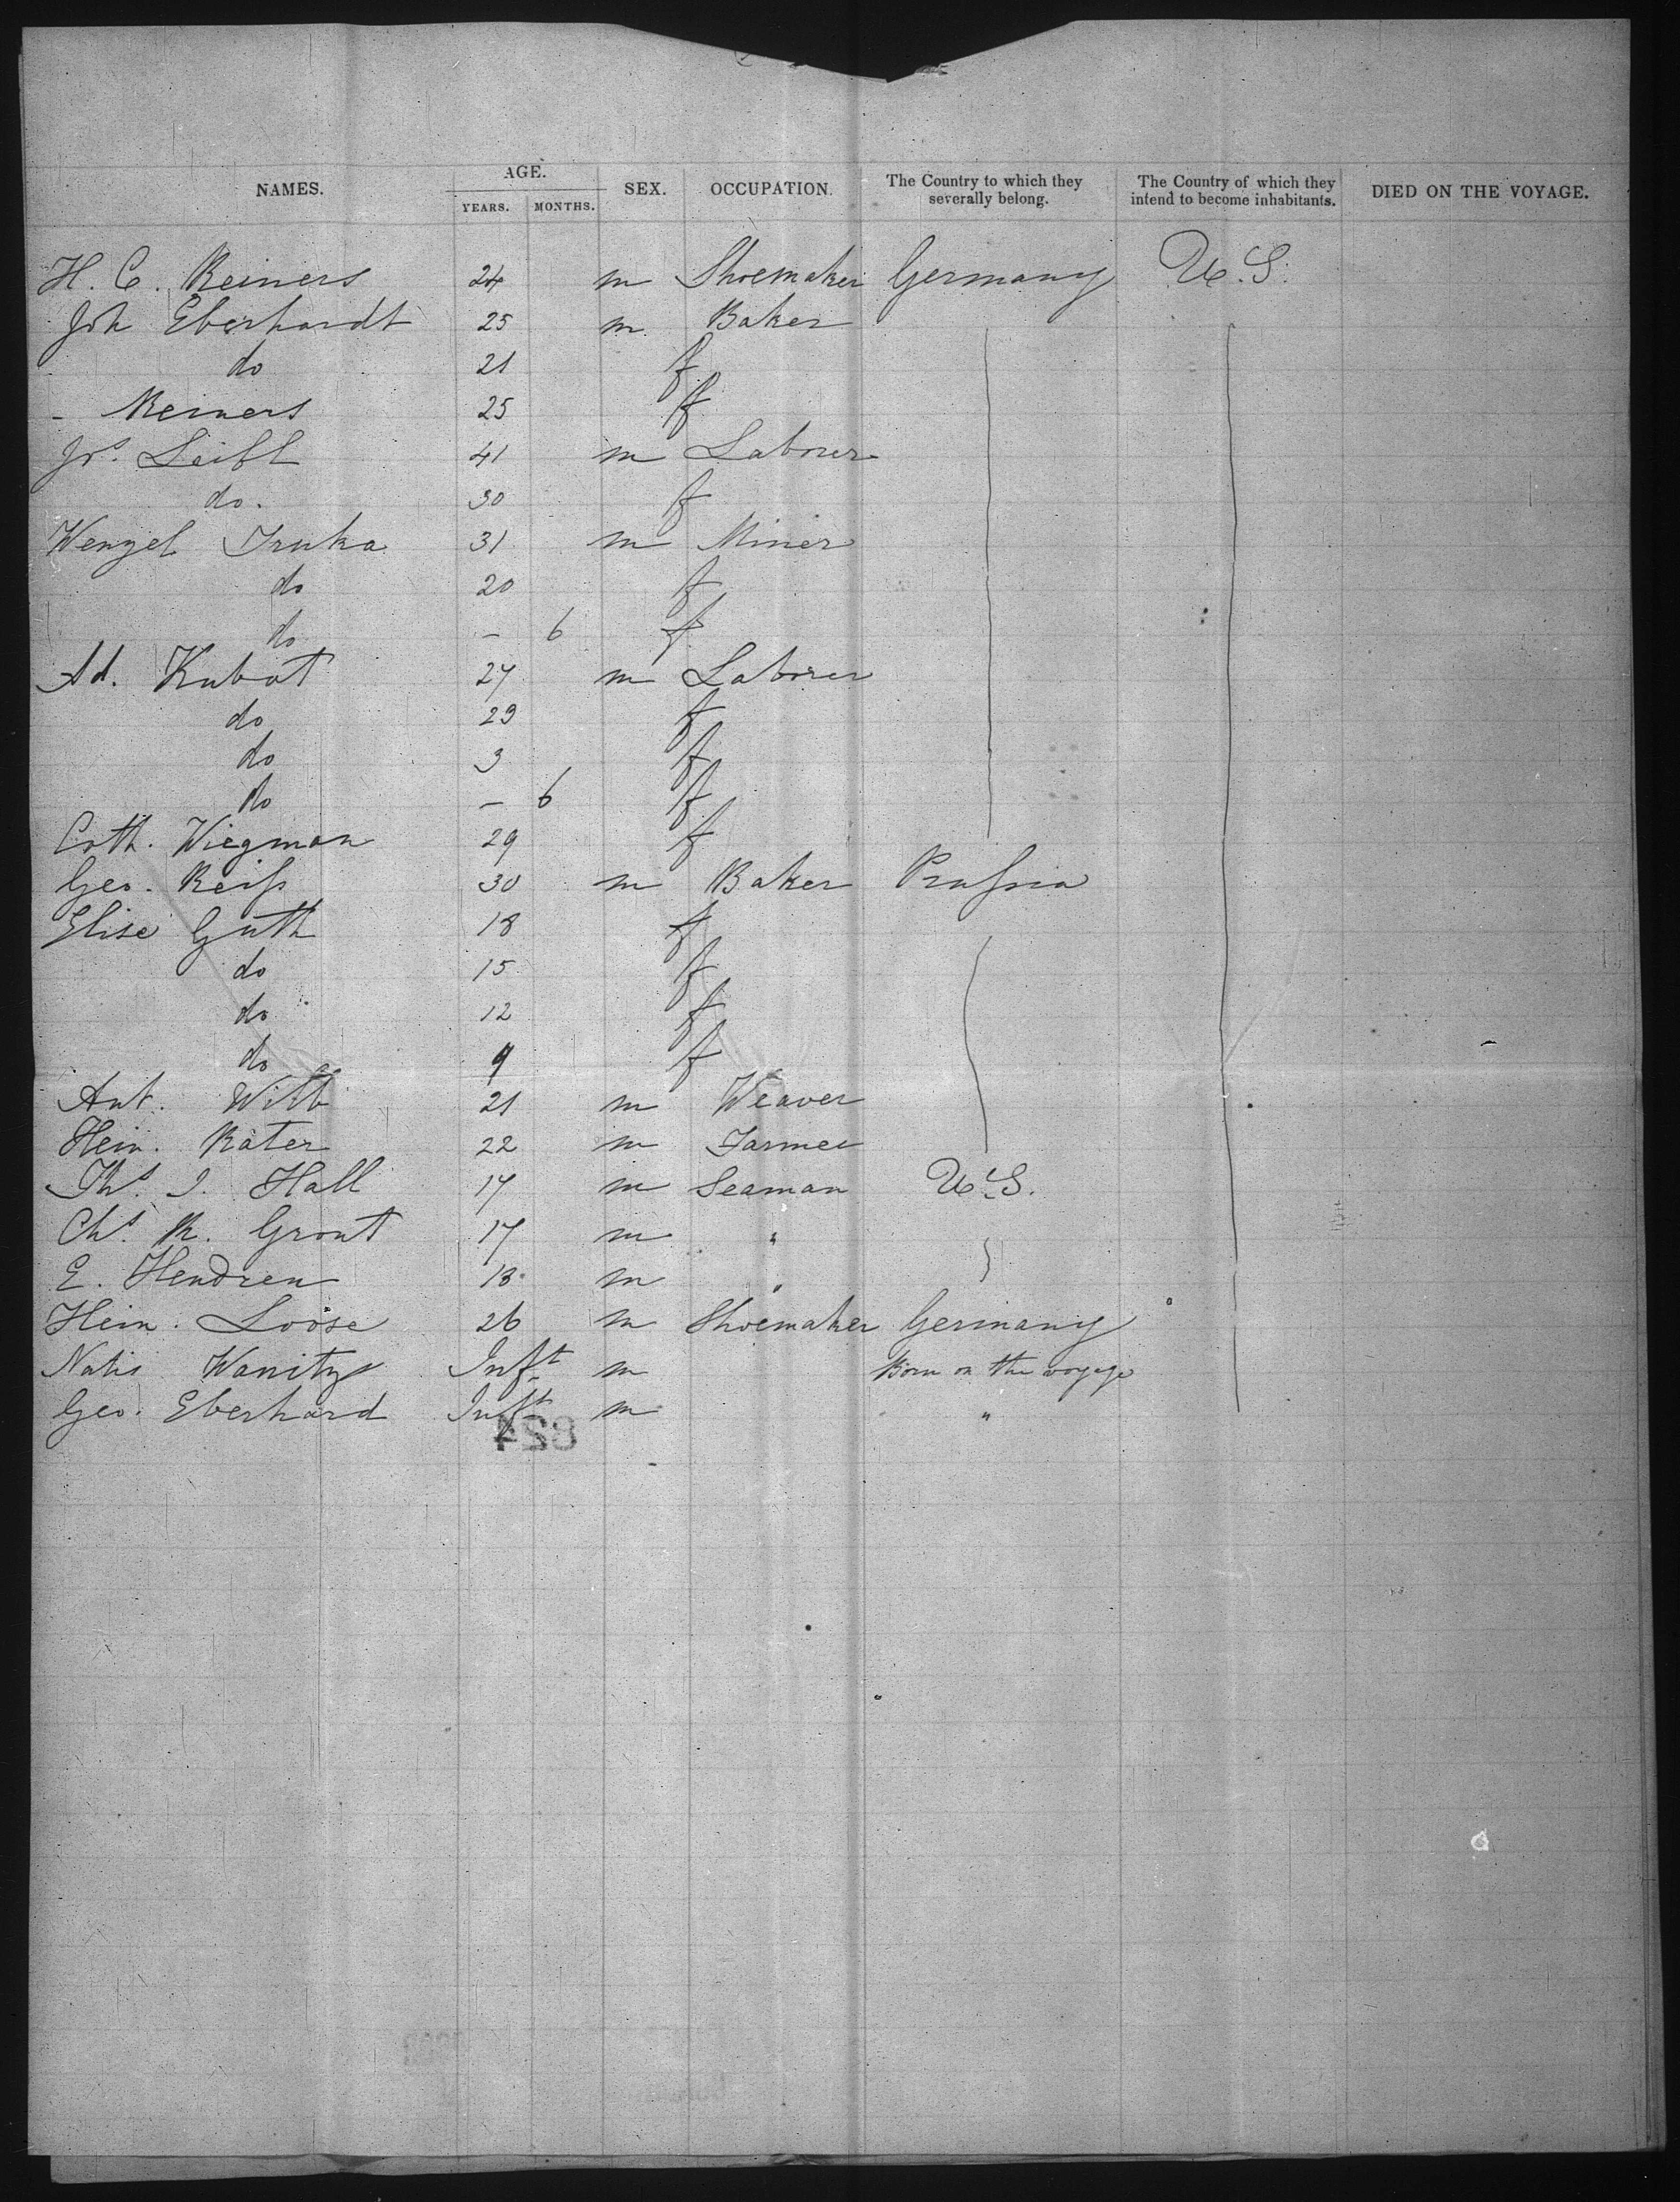 NAMES. AGE. SEX. OCCUPATION. The Country to which they severally belong. The Country of which they intend to become inhabitants. DIED ON THE VOYAGE.
YEARS. MONTHS.
H. C. Reiners 24 m Shoemaker Germany U.S.
Joh Eberhardt 25 m Baker
do 21 f
- Reiners 25 f
Js. Leibl 41 m Laborer
do. 30 f
Wenzel Truka 31 m Miner
do 20 f
do - 6 f
Ad. Kubat 27 m Laborer
do 29 f
do 3 f
do - 6 f
Cath. Wiegman 29 f
Geo. Reiſs 30 m Baker Pruſsia
Elise Guth 18 f
do 15 f
do 12 f
do 9 f
Ant. Witt 21 m Weaver
Hein. Rater 22 m Farmer
Ths. J. Hall 17 m Seaman U.S.
Chs. R. Grant 17 m "
E. Hendren 18 m "
Hein. Loose 26 m Shoemaker Germany
Wanitz Inft m Born on the voyage
Geo. Eberhard Inft m "
824